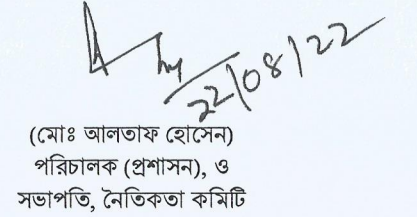 22/08/22
(মোঃ আলতাফ হোসেন)
পরিচালক (প্রশাসন), ও
সভাপতি, নৈতিকতা কমিটি